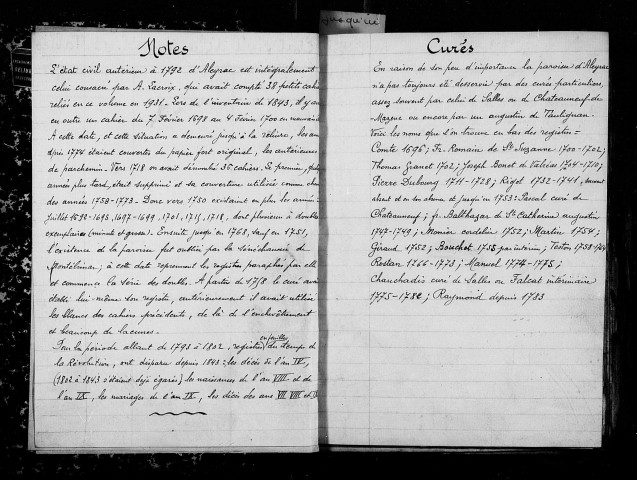 jusqu'ici
Notes
L'état civil antérieur à 1792 d'Aleyrac est intégralement
celui consacré par A. Lacroix, qui avait compté 38 petits cahi
reliés en ce volume en 1931. Lors de l'inventaire de 1843, il y av
en outre un cahier du 7 Février 1698 au 4 Février 1700 en mauvais
A cette date, et cette situation a demeuré jusqu'à la reliure, les an
après 1774 étaient couvertes du papier fort original, les antérieures
de parchemin. Vers 1718 on avait dénombré 36 cahiers. Le premier,
années plus tard, était supprimé et sa couverture utilisée comme
des années 1758-1773. Donc vers 1750 existaient en plus les années
Juillet 1692-1693, 1697-1699, 1701, 1715, 1718, dont plusieurs à doubles
exemplaires (minute et grosse). Ensuite jusqu'en 1768, sauf en 1751,
l'existence de la paroisse fut oubliée par la Sénéchaussée de
Montélimar; à cette date reprennent les registres paraphés par elle
et commence la série des doubles. A partir de 1718 le curé avait
établi lui-même son registre, antérieurement il avait utilisé
les blancs des cahiers précédents, de là de l'enchevêtrement
et beaucoup de lacunes.
Pour la période allant de 1793 à 1802, registres en feuilles du temps de
la Révolution, ont disparu depuis 1843: les décès de l'an IV,
(1802 à 1843 s'étaient déjà égarés) les naissances de l'an VIII et de
l'an IX, les mariages de l'an IX, les décès des ans VII VIII et IX
Curés
En raison de son peu d'importance la paroisse d'Aleyrac
n'a pas toujours été desservie par des curés particuliers,
assez souvent par celui de Salles ou de Chateauneuf du
Mazenc ou encore par un augustin de Taulignan.
Voici les noms que l'on trouve en bas des registres =
Comte 1696; Fr. Romain de Ste Suzanne 1700-1702;
Thomas Granet 1702; Joseph Bonot de Valréas 1704-1710;
Pierre Dubourg 1711-1728; Rigot 1732-1741, souvent
absent et en son absence et jusqu'en 1753: Pascal curé de
Chateauneuf; fr. Balthazar de Ste Catherine augustin
1747-1749; Monier cordelier 1752; Martin 1754;
Giraud 1752; Bouchet 1755 par intérim; Teston 1758-1764
Rostan 1766-1773; Manuel 1774-1775;
Chauchadis curé de Salles ou Falcat intérimaire
1775-1782; Raymond depuis 1783